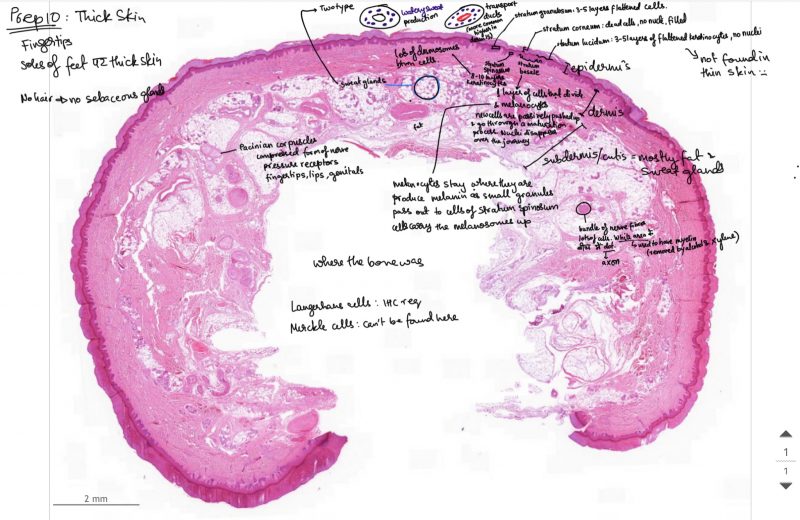 Prep10: Thick Skin
Fingertips
Soles of feet thick skin
No hair → no sebaceous gland
Two type
watery sweat
production
transport
ducts
(more common
stratum granulosum: 3-5 layers flattened cells.
stratum corneum: dead cells, no nuclei, filled
stratum lucidum: 3-5 layers of flattened keratinocytes, no nuclei
not found in
thin skin
lots of desmosomes
btwn cells.
stratum
spinosum
8-10 layers
keratinocytes
stratum
basale
epidermis
sweat glands
1 layer of cells that divide
& melanocytes
new cells are passively pushed up
& go through a maturation
process. Nuclei disappear
over the journey
dermis
fat
Pacinian corpuscles
compressed form of nerve
pressure receptors
fingertips, lips, genitals
subdermis/cutis = mostly fat &
sweat glands
melanocytes stay where they are
produce melanin as small granules
pass out to cells of stratum spinosum
cells carry the melanosomes up
bundle of nerve fibres
lots of cells. White area
after dot.
used to have myelin
(removed by alcohol & xylene)
axon
where the bone was
Langerhans cells: IHC req
Merckle cells: can't be found here
2 mm
1
1